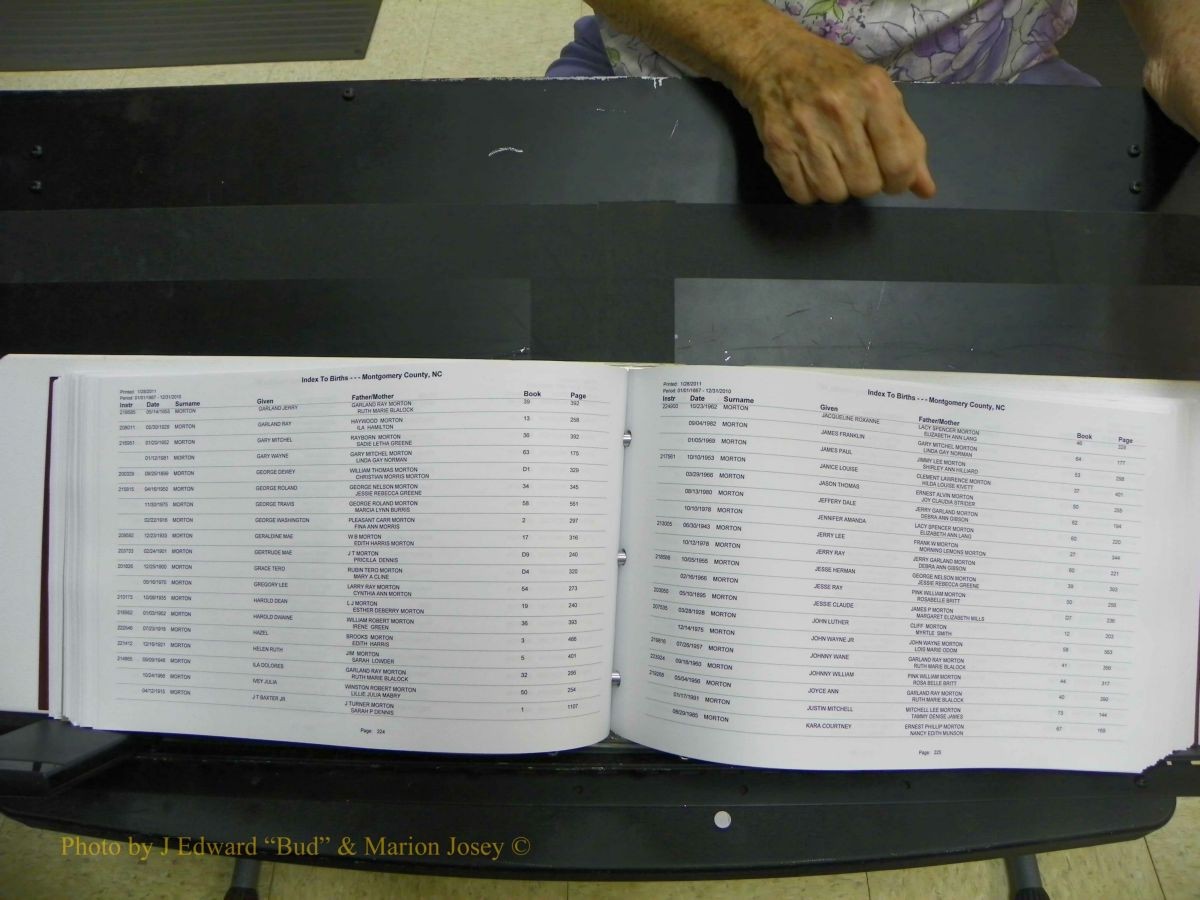 Index To Births - - - Montgomery County, NC
Printed: 1/28/2011
Period: 01/01/1867 - 12/31/2010
Instr Date Surname Given Father/Mother Book Page
MORTON GARLAND JERRY GARLAND RAY MORTON 39 392
RUTH MARIE BLALOCK
MORTON GARLAND RAY HAYWOOD MORTON 13 258
ILA HAMILTON
MORTON GARY MITCHEL RAYBORN MORTON 36 392
SADIE LETHA GREENE
01/12/1981 MORTON GARY WAYNE GARY MITCHEL MORTON 63 175
LINDA GAY NORMAN
MORTON GEORGE DEWEY WILLIAM THOMAS MORTON D1 329
CHRISTIAN MORRIS MORTON
MORTON GEORGE ROLAND GEORGE NELSON MORTON 34 345
JESSIE REBECCA GREENE
MORTON GEORGE TRAVIS GEORGE ROLAND MORTON 58 561
MARCIA LYNN BURRIS
MORTON GEORGE WASHINGTON PLEASANT CARR MORTON 2 297
FINA ANN MORRIS
12/23/1933 MORTON GERALDINE MAE W B MORTON 17 316
EDITH HARRIS MORTON
203733 02/24/1901 MORTON GERTRUDE MAE J T MORTON D9 240
PRICILLA DENNIS
12/25/1900 MORTON GRACE TERO RUBIN TERO MORTON D4 320
MARY A CLINE
05/16/1970 MORTON GREGORY LEE LARRY RAY MORTON 54 273
CYNTHIA ANN MORTON
MORTON HAROLD DEAN L J MORTON 19 240
ESTHER DEBERRY MORTON
MORTON HAROLD DWAINE WILLIAM ROBERT MORTON 36 393
IRENE GREEN
MORTON HAZEL BROOKS MORTON 3 466
EDITH HARRIS
221412 12/16/1921 MORTON HELEN RUTH JIM MORTON 5 401
SARAH LOWDER
MORTON ILA DOLORES GARLAND RAY MORTON 32 256
RUTH MARIE BLALOCK
10/24/1966 MORTON IVEY JULIA WINSTON ROBERT MORTON 50 254
LILLIE JULIA MABRY
04/12/1915 MORTON J T BAXTER JR J TURNER MORTON 1 1107
SARAH P DENNIS
Page: 224
Index To Births - - - Montgomery County, NC
Printed: 1/28/2011
Period: 01/01/1867 - 12/31/2010
Instr Date Surname Given Father/Mother Book Page
10/23/1962 MORTON JACQUELINE ROXANNE LACY SPENCER MORTON 46
ELIZABETH ANN LANG
09/04/1982 MORTON JAMES FRANKLIN GARY MITCHEL MORTON 64 177
LINDA GAY NORMAN
01/05/1969 MORTON JAMES PAUL JIMMY LEE MORTON 53
SHIRLEY ANN HILLIARD
217561 10/10/1953 MORTON JANICE LOUISE CLEMENT LAWRENCE MORTON 37 401
HILDA LOUISE KIVETT
03/29/1966 MORTON JASON THOMAS ERNEST ALVIN MORTON 50
JOY CLAUDIA STRIDER
08/13/1980 MORTON JEFFERY DALE JERRY GARLAND MORTON 62 194
DEBRA ANN GIBSON
10/10/1978 MORTON JENNIFER AMANDA LACY SPENCER MORTON 60 220
ELIZABETH ANN LANG
213005 06/30/1943 MORTON JERRY LEE FRANK W MORTON 27 344
MORNING LEMONS MORTON
10/12/1978 MORTON JERRY RAY JERRY GARLAND MORTON 60 221
DEBRA ANN GIBSON
10/05/1955 MORTON JESSE HERMAN GEORGE NELSON MORTON 39 393
JESSIE REBECCA GREENE
02/16/1966 MORTON JESSE RAY PINK WILLIAM MORTON 50
ROSABELLE BRITT
203050 05/10/1895 MORTON JESSIE CLAUDE JAMES P MORTON D7
MARGARET ELIZABETH MILLS
207535 03/28/1928 MORTON JOHN LUTHER CLIFF MORTON 12 203
MYRTLE SMITH
12/14/1975 MORTON JOHN WAYNE JR JOHN WAYNE MORTON 58 563
LOIS MARIE ODOM
07/26/1957 MORTON JOHNNY WANE GARLAND RAY MORTON 41
RUTH MARIE BLALOCK
09/18/1960 MORTON JOHNNY WILLIAM PINK WILLIAM MORTON 44 317
ROSA BELLE BRITT
05/04/1956 MORTON JOYCE ANN GARLAND RAY MORTON 40
RUTH MARIE BLALOCK
01/17/1991 MORTON JUSTIN MITCHELL MITCHELL LEE MORTON 73 144
TAMMY DENISE JAMES
08/29/1985 MORTON KARA COURTNEY ERNEST PHILLIP MORTON 67 169
NANCY EDITH MUNSON
Page: 225
Photo by J Edward “Bud” & Marion Josey ©